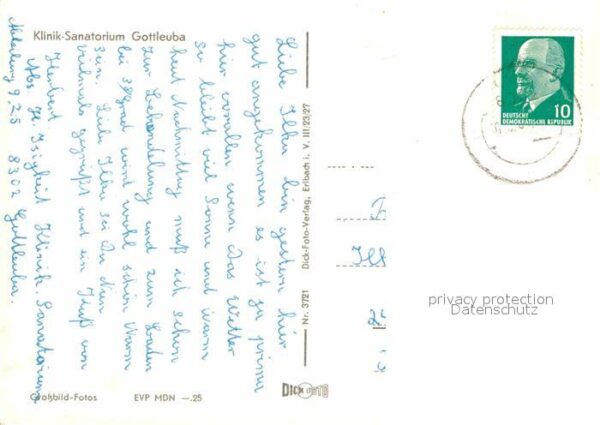 Klinik-Sanatorium Gottleuba
Liebe Ilka bin gestern hier
gut angekommen es ist ja prima
hier vorallen wenn das Wetter
so bleibt viel Sonne und warm
heut Nachmittag muß ich schon
zur Behandlung und zum baden
bei 38grad wird wohl schön warm
sein Liebe Ilka sei Du nun
vielmals gegrüßt und ein Kuß von
Herbert
Abs. Klinik Sanatorium
Abteilung 9-25 8302 Gottleuba.
Großbild-Fotos EVP MDN —.25
Nr. 3721 Dick-Foto-Verlag, Erlbach i. V. III/23/27
DICK FOTO
DEUTSCHE
DEMOKRATISCHE REPUBLIK
10
privacy protection
Datenschutz